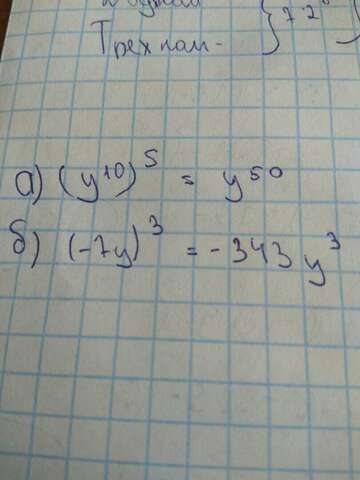 Трехпам- } 7.2
а) (y¹⁰)⁵ = y⁵⁰
б) (-7y)³ = -343 y³